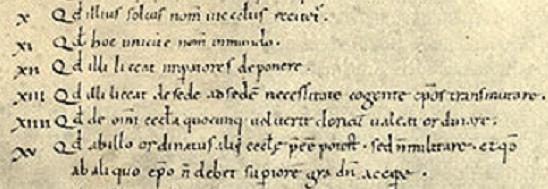 x Qd illius solius nom̄ in eccłiis recitet̄.
xi Qd hoc unicū ē nom̄ in mundo.
xii Qd illi liceat imp̄atores deponere.
xiii Qd illi liceat de sede ad sedē necessitate cogente ep̄os transmutare.
xiiii Qd de om̄i eccła quocunq; uoluerit clericū ualeat ordinare.
xv Qd ab illo ordinatus alii eccłę p̄eē potest. sed n̄ militare. et qd̄
ab aliquo ep̄o n̄ debet sup̄iorē gradū accipe.